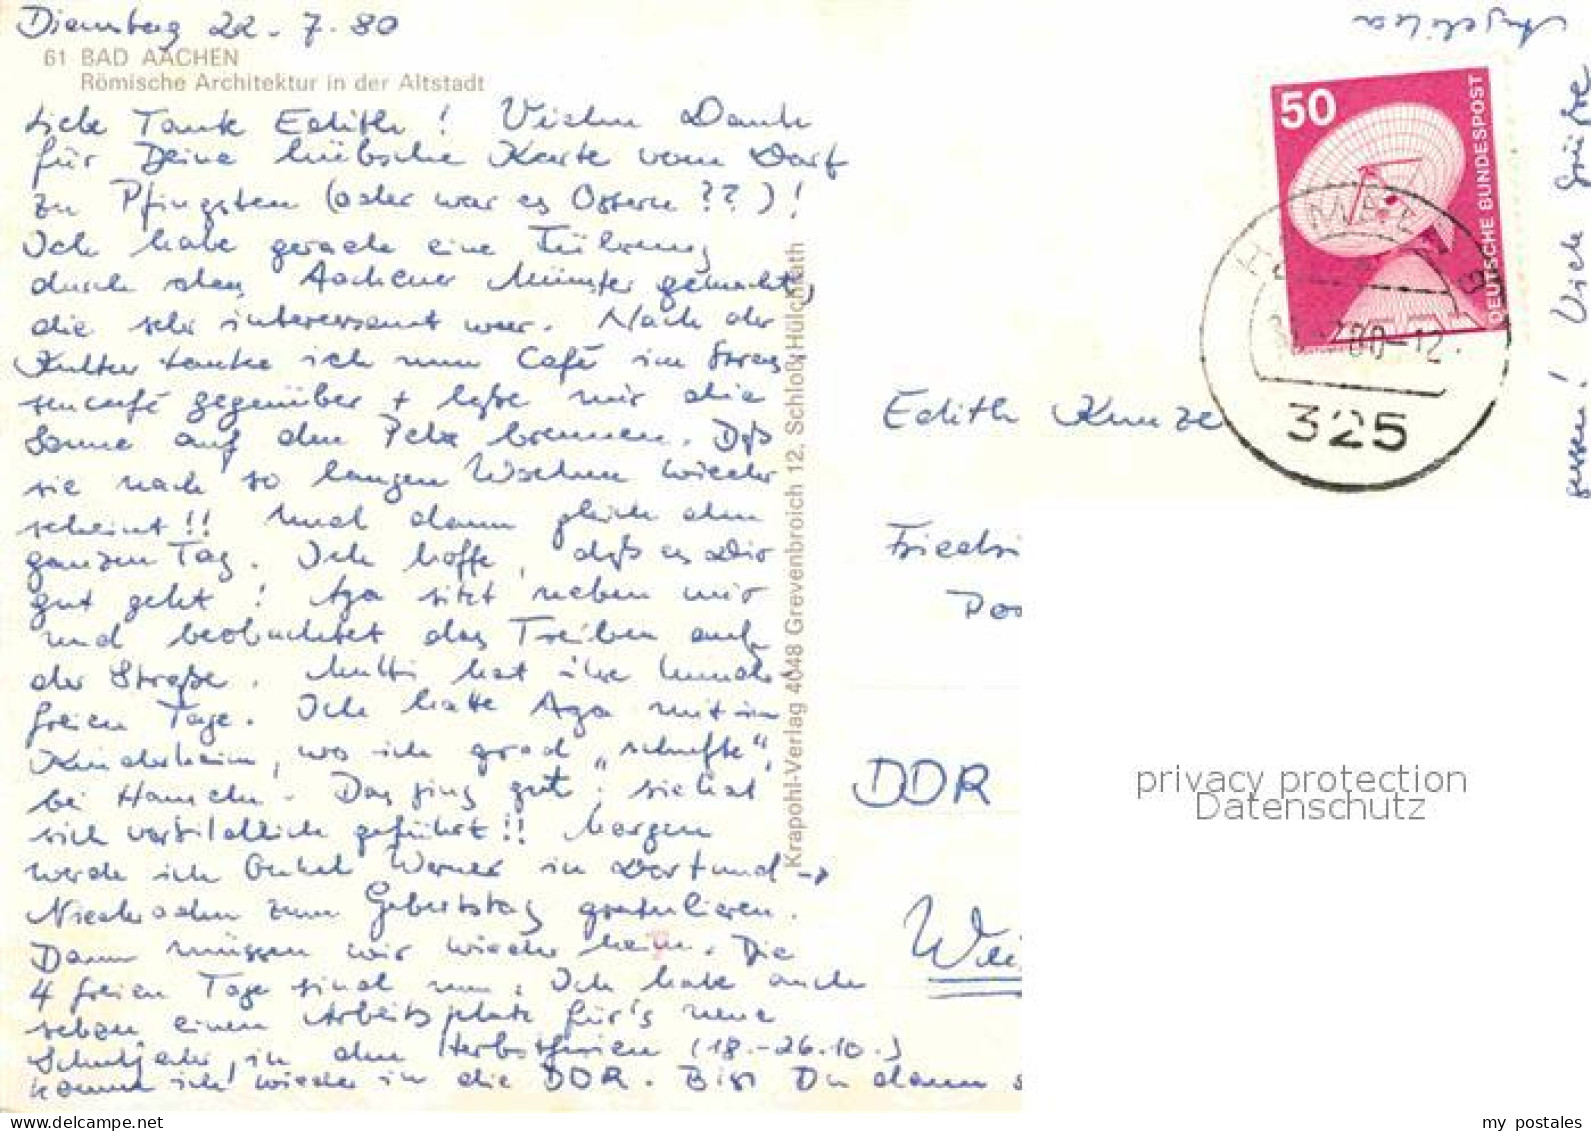 Dienstag 22.7.80
61 BAD AACHEN
Römische Architektur in der Altstadt
Liebe Tante Edith! Vielen Dank
für Deine hübsche Karte vom Dorf
zu Pfingsten (oder war es Ostern??)!
Ich habe gerade eine Führung
durch das Aachener Münster gemacht,
die sehr interessant war. Nach der
Kultur tanke ich nun Café im Stras
sencafé gegenüber + lasse mir die
Sonne auf den Pelz brennen. Daß
sie nach so langen Wochen wieder
scheint!! Und dann gleich den
ganzen Tag. Ich hoffe, daß es Dir
gut geht! Aga sitzt neben mir
und beobachtet das Treiben auf
der Straße. Mutti hat ihre
freien Tage. Ich hatte Aga mit im
Kinderheim, wo ich grad „schufte“,
bei Hameln. Das ging gut, sie hat
sich vorbildlich geführt!! Morgen
werde ich Onkel Werner in Dortmund →
Niederaden zum Geburtstag gratulieren.
Dann müssen wir wieder heim. Die
4 freien Tage sind um. Ich habe auch
schon einen Arbeitsplatz für's neue
Schuljahr, in den Herbstferien (18.-26.10.)
komme ich wieder in die DDR. Bist Du dann
Viele Grüße
Angelika
Krapohl-Verlag 4048 Grevenbroich 12, Schloß Hülchrath
50
DEUTSCHE BUNDESPOST
HAMELN
80-12
325
Edith Kunze
Friedri
Pos
DDR
Wei
privacy protection
Datenschutz
my postales